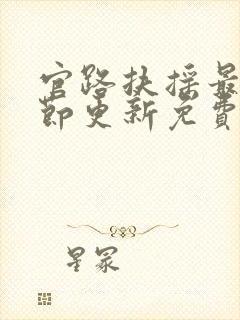 官路扶摇最
节更新免费
星冢